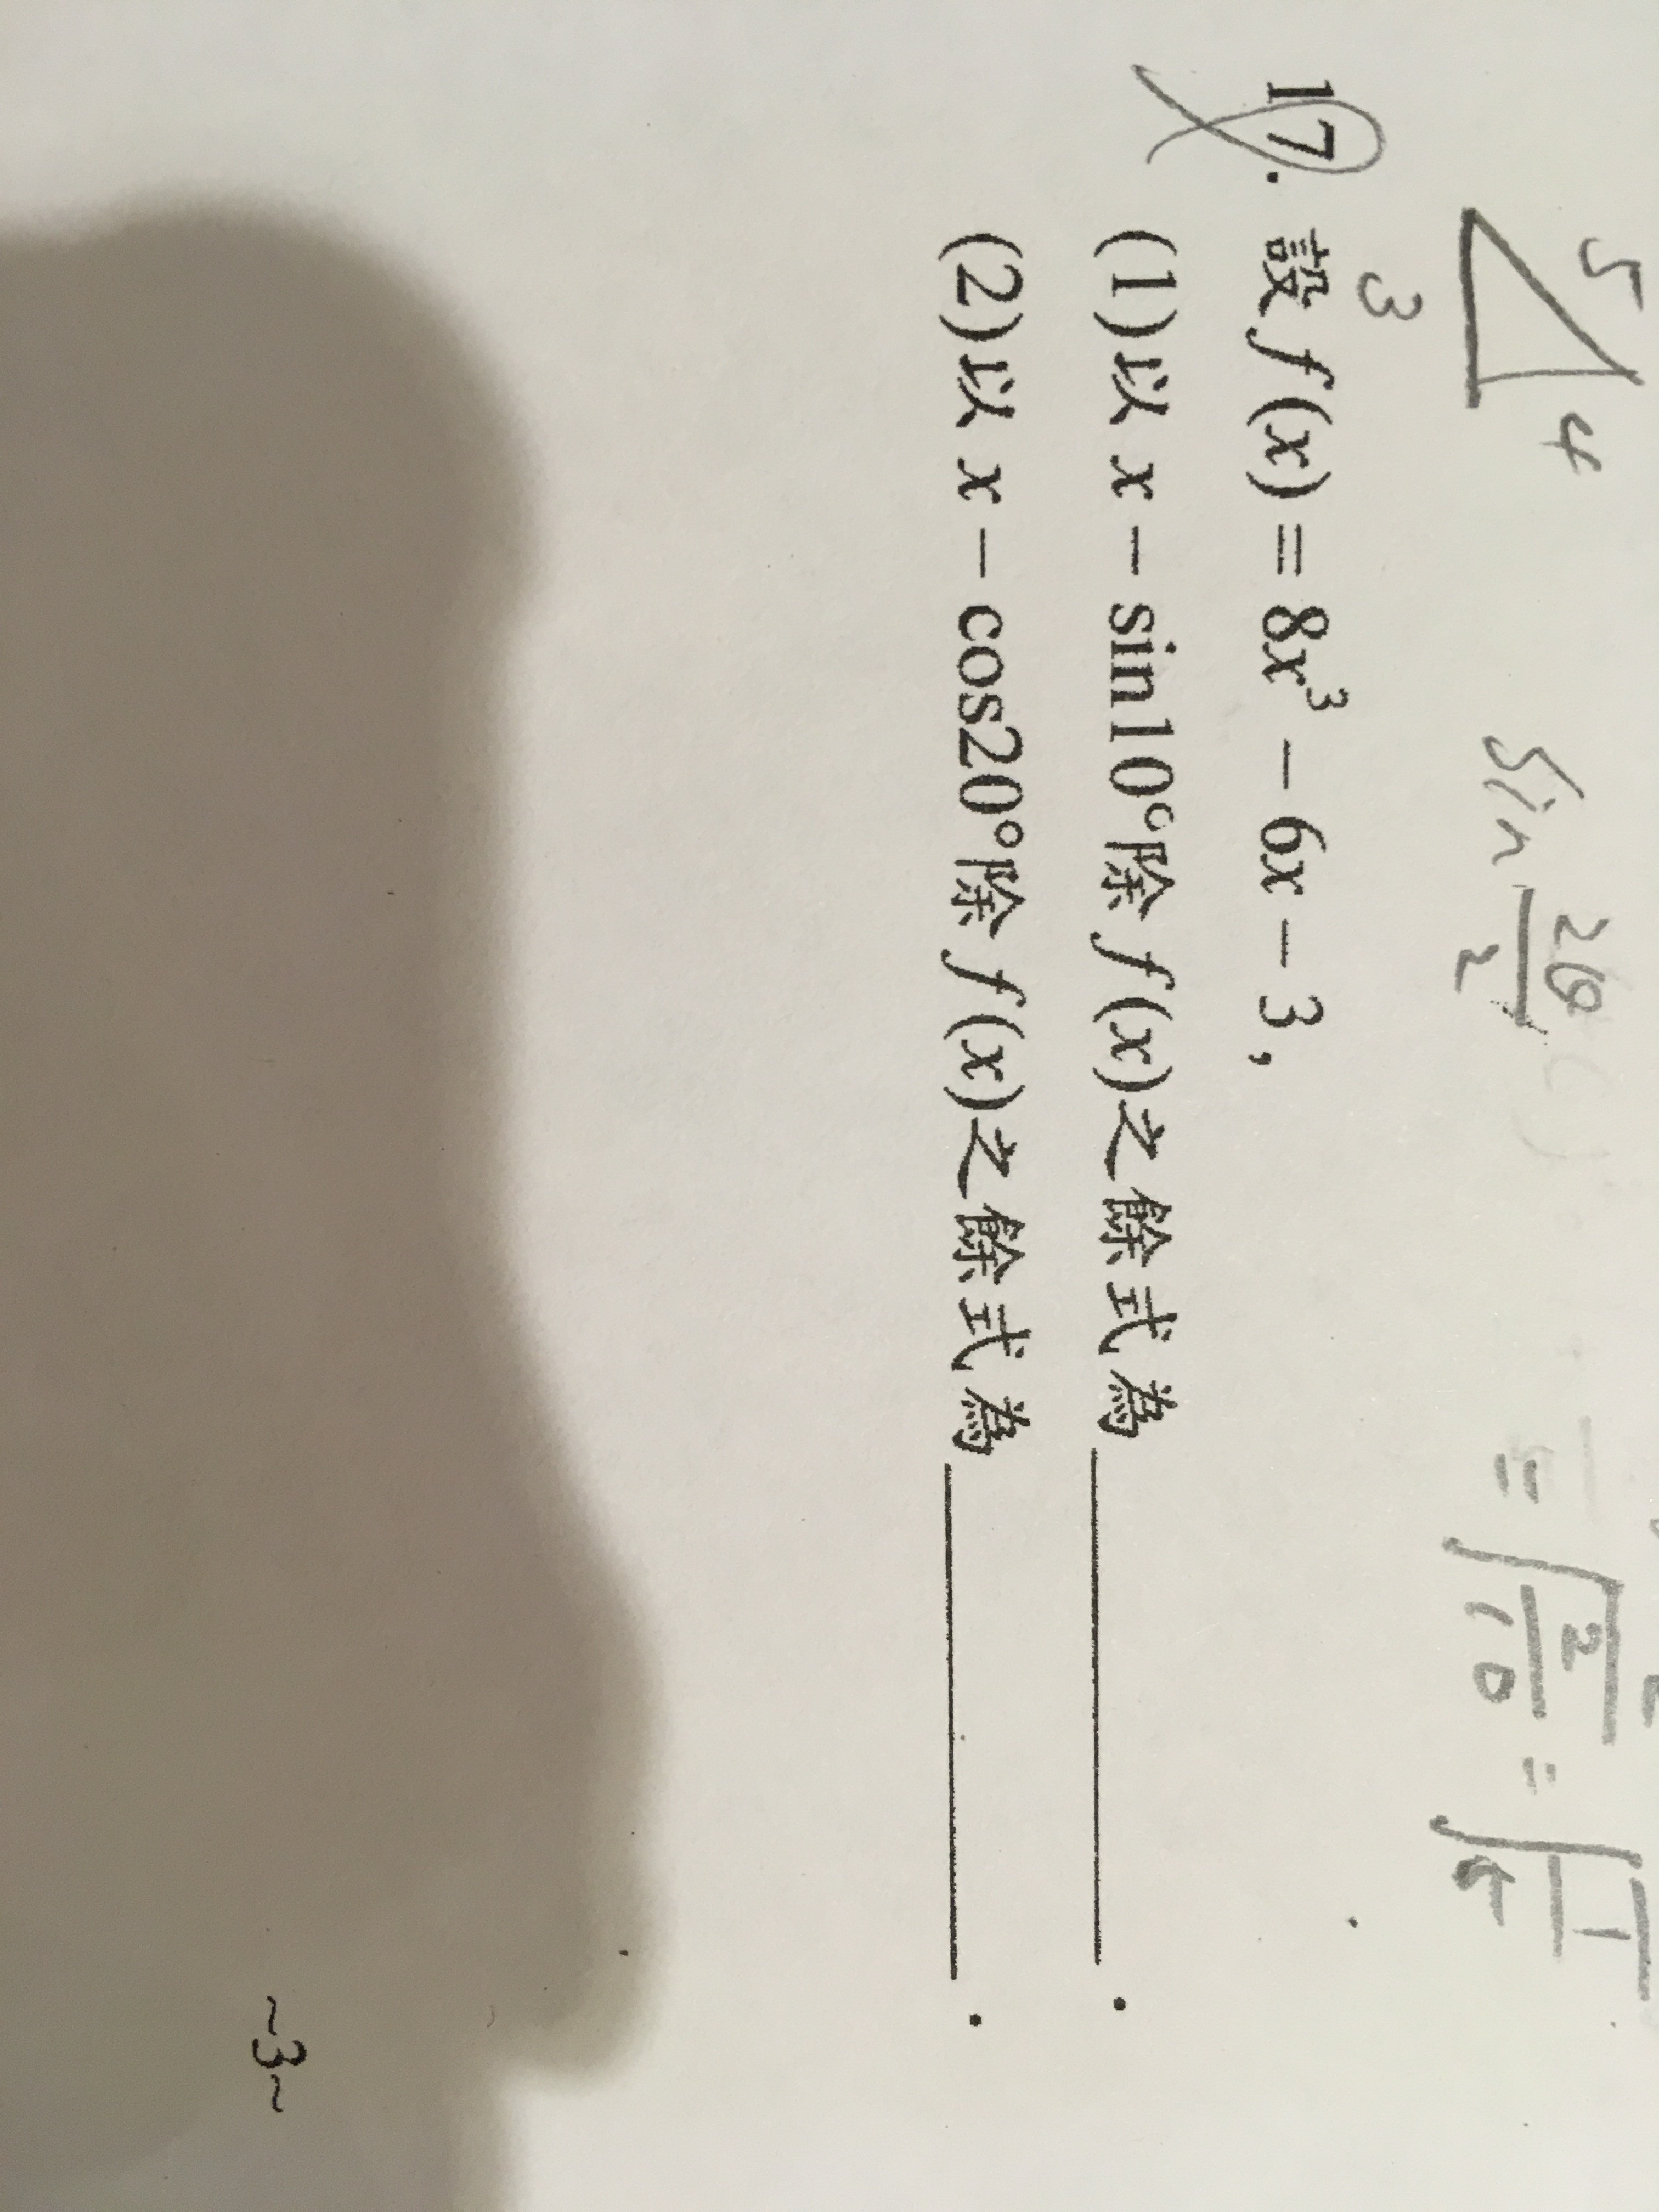 5
4
3
sin 2θ/2
= √2/10 = √1/5
17. 設 f(x) = 8x³ − 6x − 3,
(1)以 x − sin10°除 f(x)之餘式為________.
(2)以 x − cos20°除 f(x)之餘式為________.
~3~